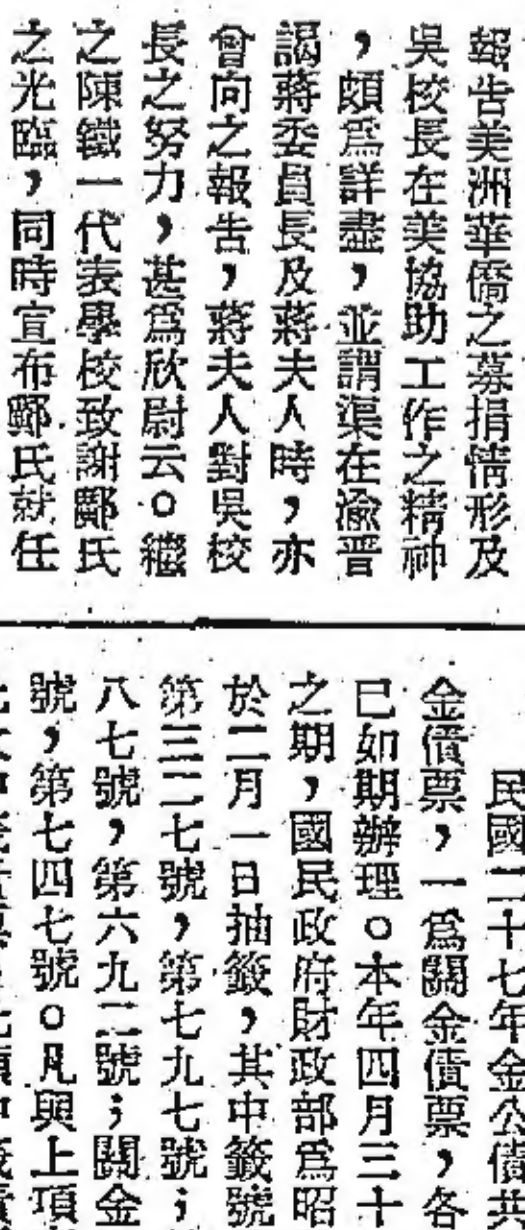 報告美洲華僑之募捐情形及
吳校長在美協助工作之精神
，頗爲詳盡，並謂渠在渝晋
謁蔣委員長及蔣夫人時，亦
曾向之報告，蔣夫人對吳校
長之努力，甚爲欣尉云。繼
之陳鐵一代表學校致謝鄺氏
之光臨，同時宣布鄺氏就任
民國二十七年金公債共
金債票，一爲關金債票，各
已如期辦理。本年四月三十
之期，國民政府財政部爲昭
於二月一日抽籤，其中籤號
第三二七號，第七九七號；
八七號，第六九二號；關金
號，第七四七號。凡與上項